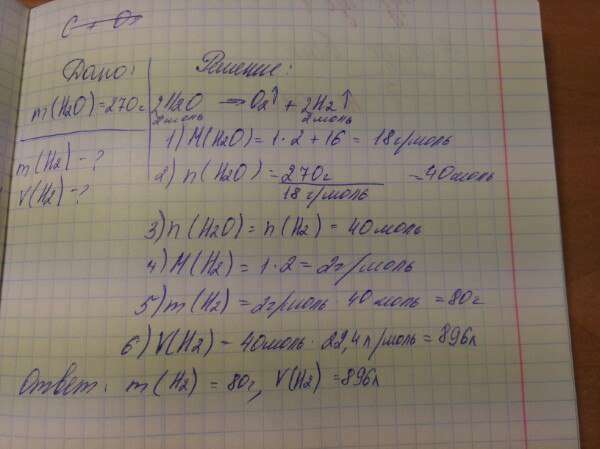 C + O₂
Дано:
Решение:
m(H₂O)=270г
2H₂O → O₂↑ + 2H₂↑
2моль 2моль
m(H₂)-?
V(H₂)-?
1) M(H₂O) = 1·2+16 = 18г/моль
2) n(H₂O) = 270г / 18г/моль = 40моль
3) n(H₂O) = n(H₂) = 40моль
4) M(H₂) = 1·2 = 2г/моль
5) m(H₂) = 2г/моль 40моль = 80г
6) V(H₂) - 40моль · 22,4л/моль = 896л
Ответ: m(H₂) = 80г, V(H₂) = 896л